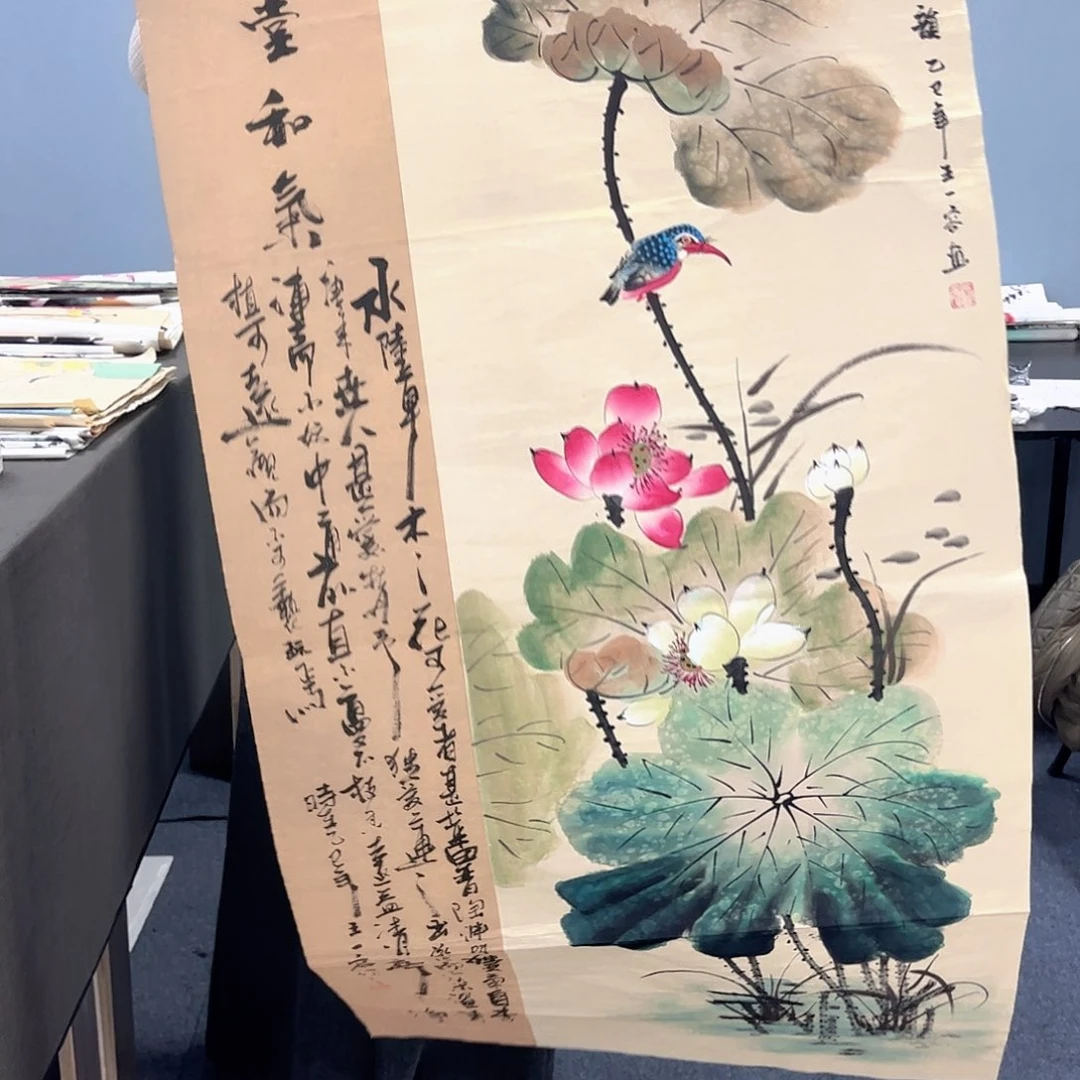 乙巳年王一容画
堂和氣
水陸草木之花可愛者甚蕃晋陶淵明獨愛菊自李
唐来世人甚愛牡丹予獨愛蓮之出淤泥而不染
漣而不妖中通外直不蔓不枝香遠益清
植可遠觀而不可褻玩焉
時在乙巳年王一容